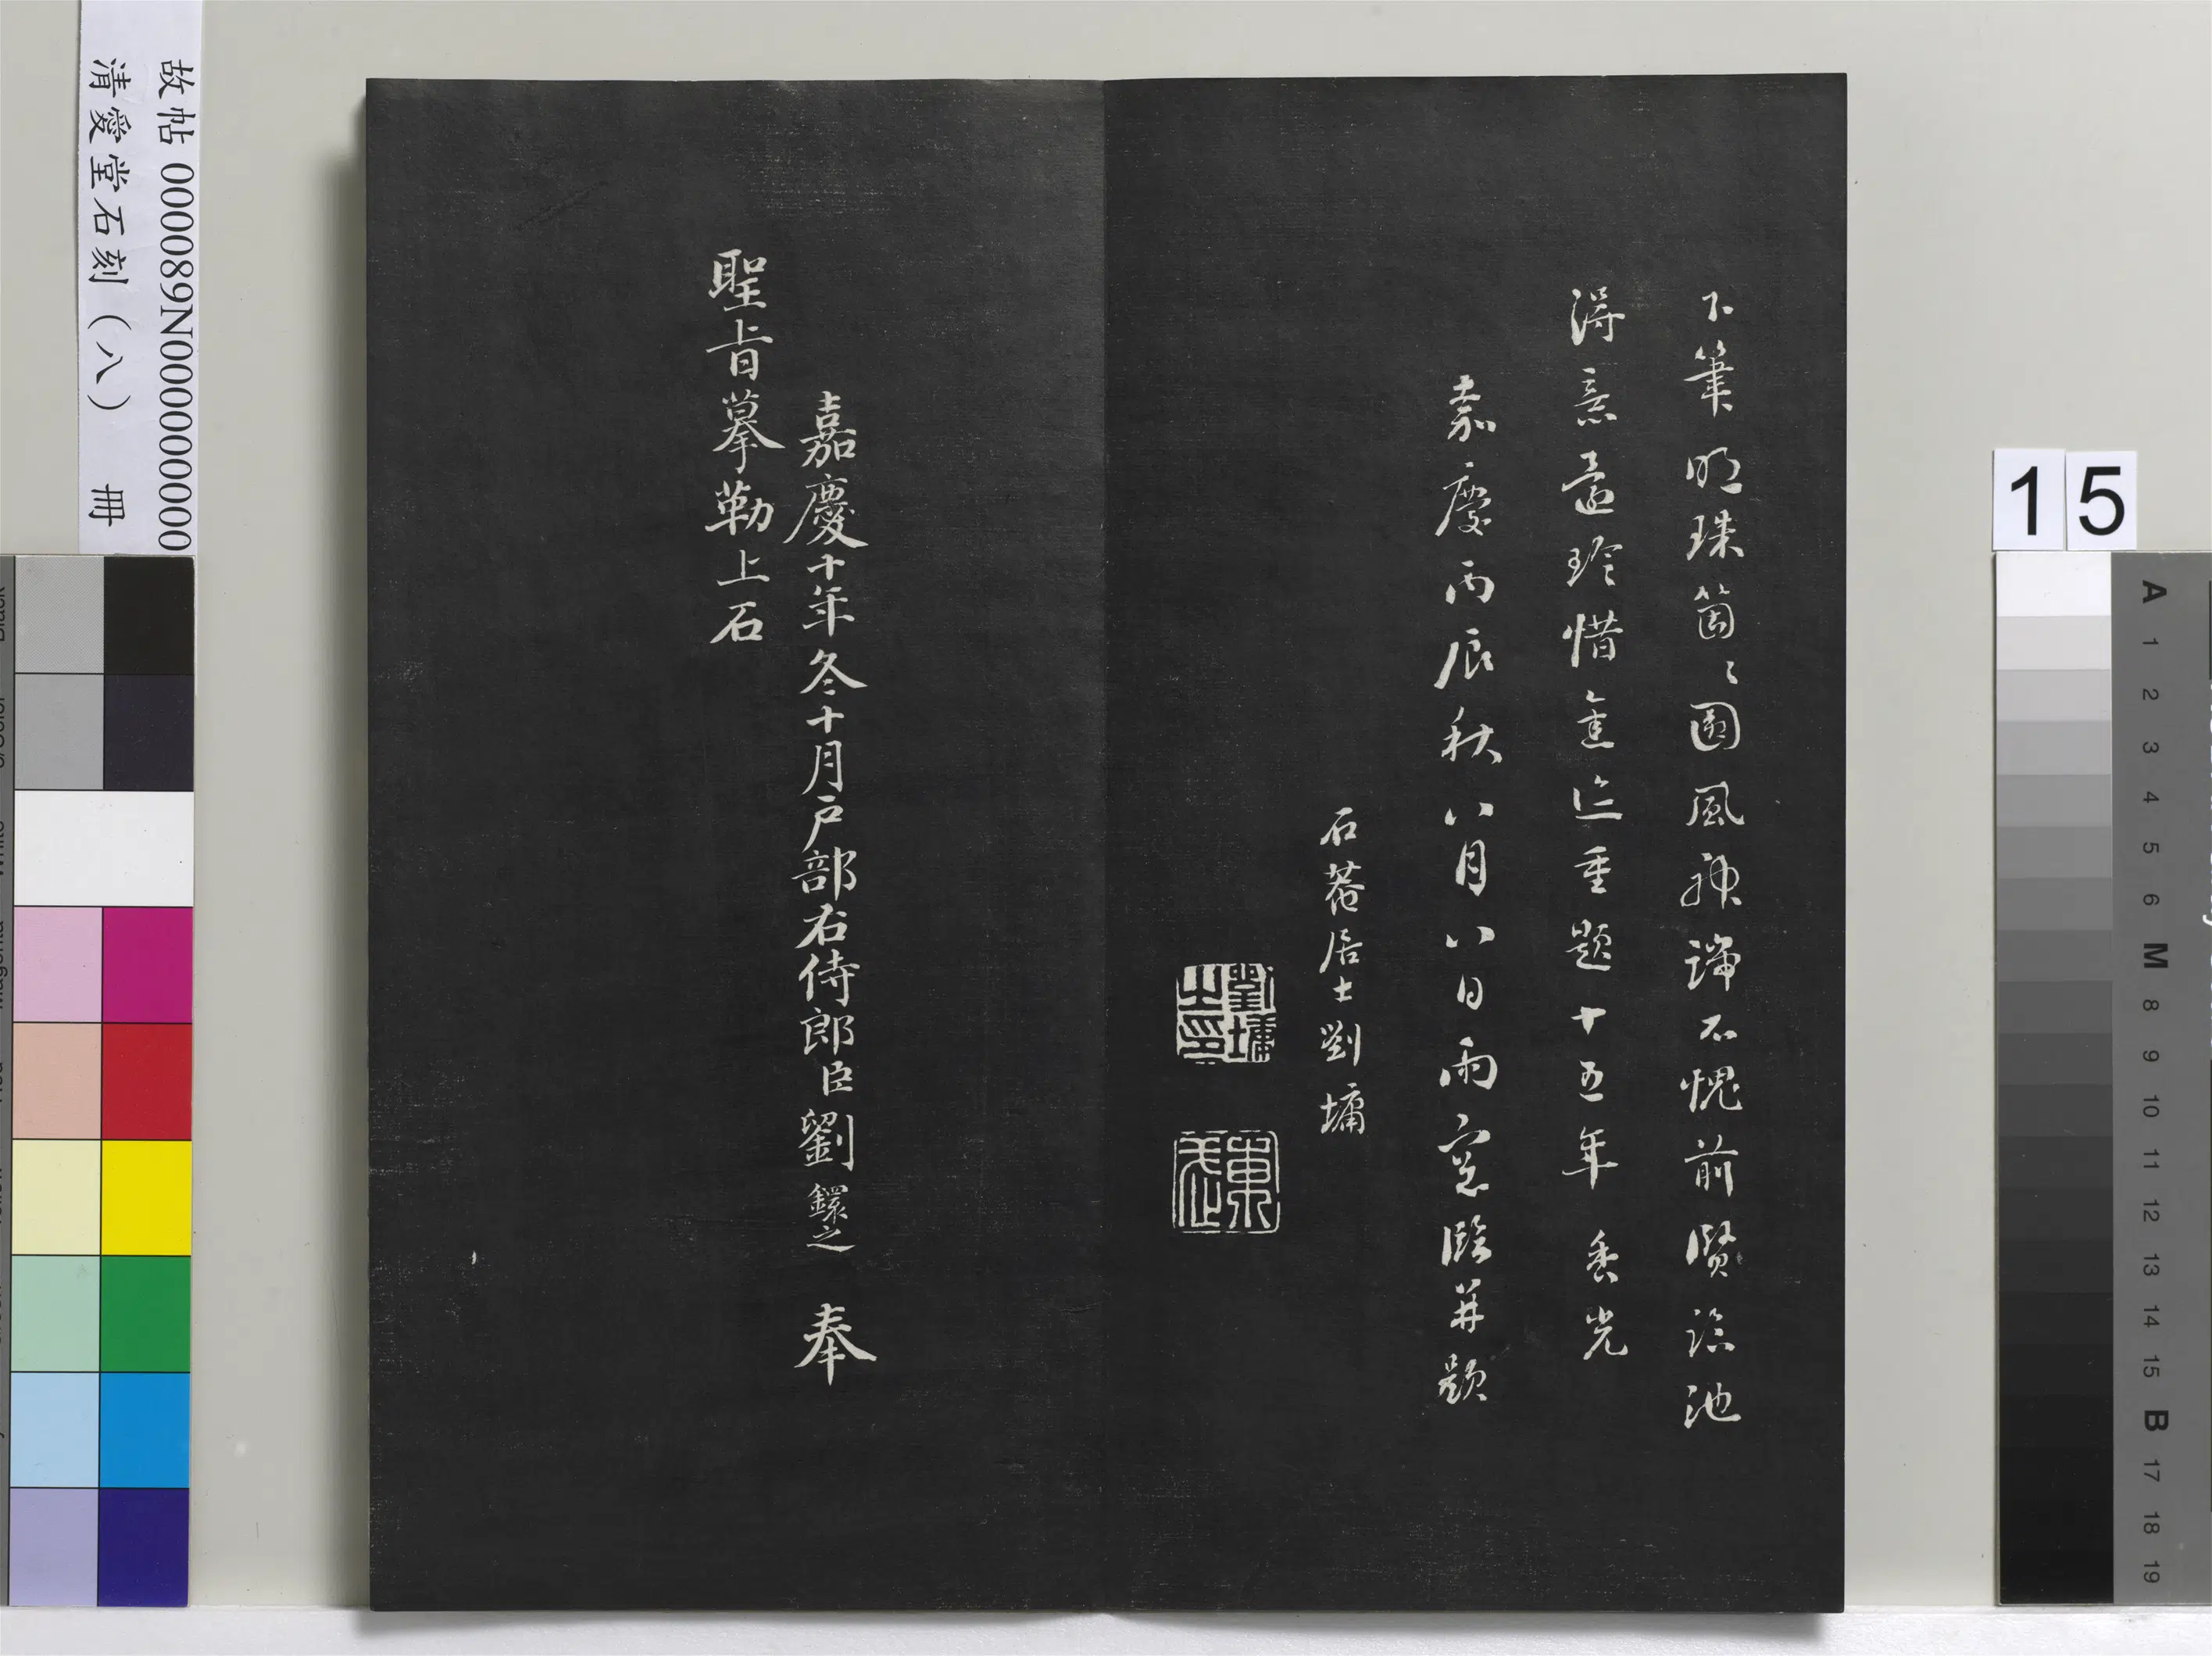 下筆明珠箇々圓風神諦不愧前賢臨池
得意還珍惜舊迹重題十五年 香光
嘉慶丙辰秋八月八日雨窓臨并題
石菴居士劉墉
劉墉之印
東武
嘉慶十年冬十月戶部右侍郎臣劉鐶之 奉
聖旨摹勒上石
故帖 000089N000000000
清愛堂石刻（八） 冊
15
A
1
2
3
4
5
6
M
8
9
10
11
12
13
14
15
B
17
18
19